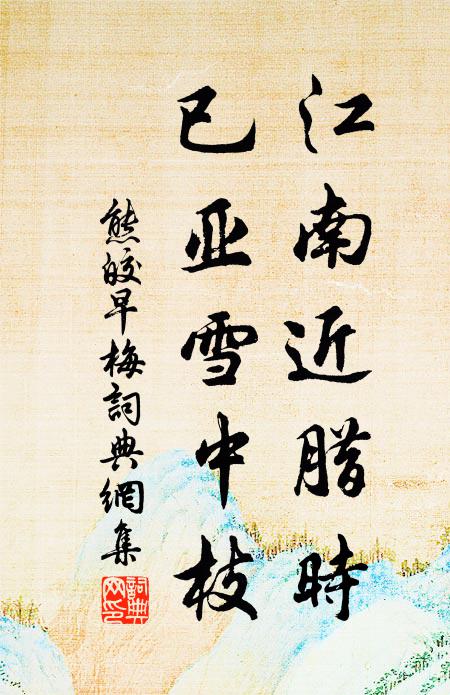 江南近腊時
已亚雪中枝
熊皎早梅詞典網集
詞典网印